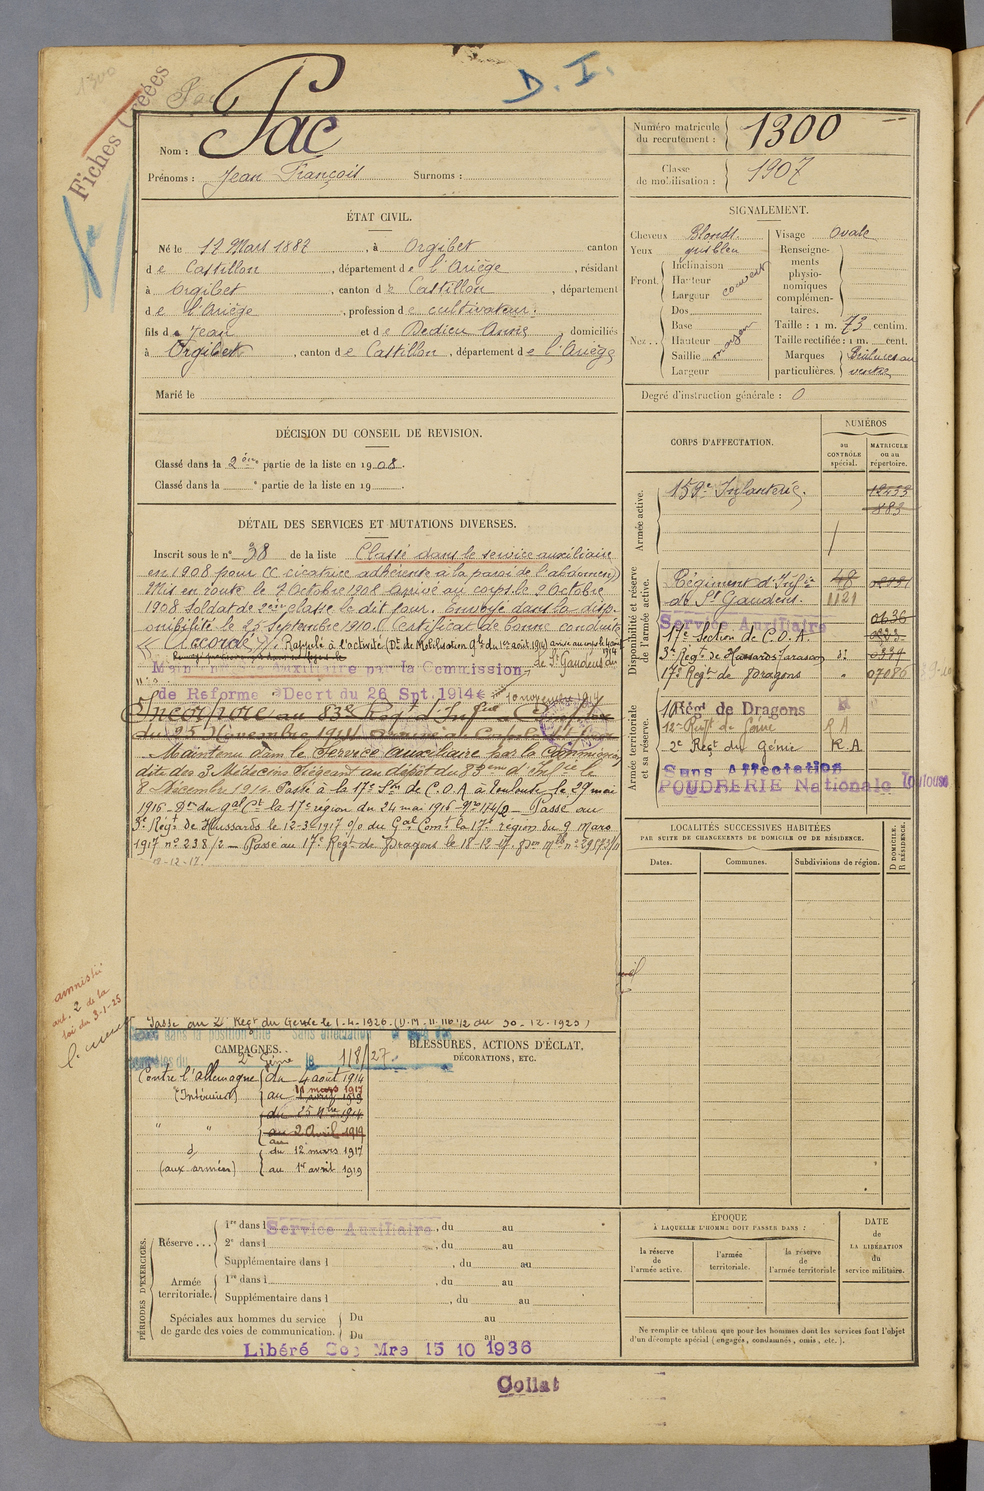 Fiches Créées
D. I.
Nom : Pac
Prénoms : Jean François Surnoms :
Numéro matricule du recrutement : 1300
Classe de mobilisation : 1907
ÉTAT CIVIL.
Né le 12 Mars 1882, à Orgibet canton
de Castillon, département de l'Ariège, résidant
à Orgibet, canton de Castillon, département
de l'Ariège, profession de cultivateur.
fils de Jean et de Dedieu Anne, domiciliés
à Orgibet, canton de Castillon, département de l'Ariège
Marié le
SIGNALEMENT.
Cheveux Blonds.
Yeux gris bleu
Front. Inclinaison
Hauteur couvert
Largeur
Nez. Dos
Base
Hauteur moyen
Saillie
Largeur
Visage Ovale
Renseignements physionomiques complémentaires.
Taille : 1 m. 73 centim.
Taille rectifiée : 1 m. cent.
Marques particulières. Brûlures au ventre
Degré d'instruction générale : 0
DÉCISION DU CONSEIL DE REVISION.
Classé dans la 2ème partie de la liste en 1908.
Classé dans la ° partie de la liste en 19
DÉTAIL DES SERVICES ET MUTATIONS DIVERSES.
Inscrit sous le n° 38 de la liste Classé dans le service auxiliaire
en 1908 pour (( cicatrice adhérente à la paroi de l'abdomen))
Mis en route le 7 Octobre 1908 arrivé au corps le 9 Octobre
1908 soldat de 2ème classe le dit jour. Envoyé dans la disp-
onibilité le 25 Septembre 1910. Certificat de bonne conduite
(( Accordé )). Rappelé à l'activité (Dt de Mobilisation Gle du 1er août 1914)
de St Gaudens
Maintenu Auxiliaire par la Commission
de Reforme Decrt du 26 Spt. 1914
10 novembre 1914
Incorporé au 83e Régt d'Infie
du 25 Novembre 1914
Maintenu dans le Service auxiliaire par la Commission
dite des 3 Médecins Siégeant au dépôt du 83ème d'Infie le
8 Décembre 1914. Passé à la 17e Son de C.O.A à Toulouse le 29 mai
1916 - du Gal Ct la 17e région du 24 mai 1916 - Passé au
3e Régt de Hussards le 12-3-1917 o/o du Gal Comt la 17e région du 9 Mars
1917 n° 238/2 - Passé au 17e Régt de Dragons le 18-12-17.
18-12-17.
amnistié
art. 2 de la
loi du 3-1-25
Passé au 2e Régt du Génie le 1.4.1926. (D.M. 11.116 1/2 du 30-12-1925)
CORPS D'AFFECTATION.
NUMÉROS
au CONTRÔLE spécial.
MATRICULE ou au répertoire.
Armée active.
159e Infanterie.
12433
883
Disponibilité et réserve de l'armée active.
Régiment d'Infie
de St Gaudens.
48
1121
Service Auxiliaire
17e Section de C.O.A.
0636
3e Régt de Hussards Tarascon
17e Regt de Dragons
07086
Armée territoriale et sa réserve.
10 Régt de Dragons
12e Regt de Génie
2e Regt du Génie R.A
Sans Affectation
POUDRERIE Nationale Toulouse
LOCALITÉS SUCCESSIVES HABITÉES
PAR SUITE DE CHANGEMENTS DE DOMICILE OU DE RÉSIDENCE.
Dates. Communes. Subdivisions de région.
D DOMICILE.
R RÉSIDENCE.
dans la position dite Sans affectation
2e Génie le 1/8/27
CAMPAGNES.
BLESSURES, ACTIONS D'ÉCLAT,
DÉCORATIONS, ETC.
Contre l'allemagne du 4 août 1914
(Intérieur) au 11 mars 1917
1 avril 1919
du 25 9bre 1914
" " au 2 Avril 1919
du 12 mars 1917
(aux armées) au 1er avril 1919
PÉRIODES D'EXERCICES.
Réserve ... 1re dans l Service Auxiliaire, du au
2e dans l , du au
Supplémentaire dans l , du au
Armée territoriale. 1re dans l , du au
Supplémentaire dans l , du au
Spéciales aux hommes du service de garde des voies de communication. Du au
Du au
ÉPOQUE
À LAQUELLE L'HOMME DOIT PASSER DANS :
la réserve de l'armée active.
l'armée territoriale.
la réserve de l'armée territoriale
DATE de LA LIBÉRATION du service militaire.
Ne remplir ce tableau que pour les hommes dont les services font l'objet
d'un décompte spécial (engagés, condamnés, omis, etc.).
Libéré Mre 15 10 1936
Collat